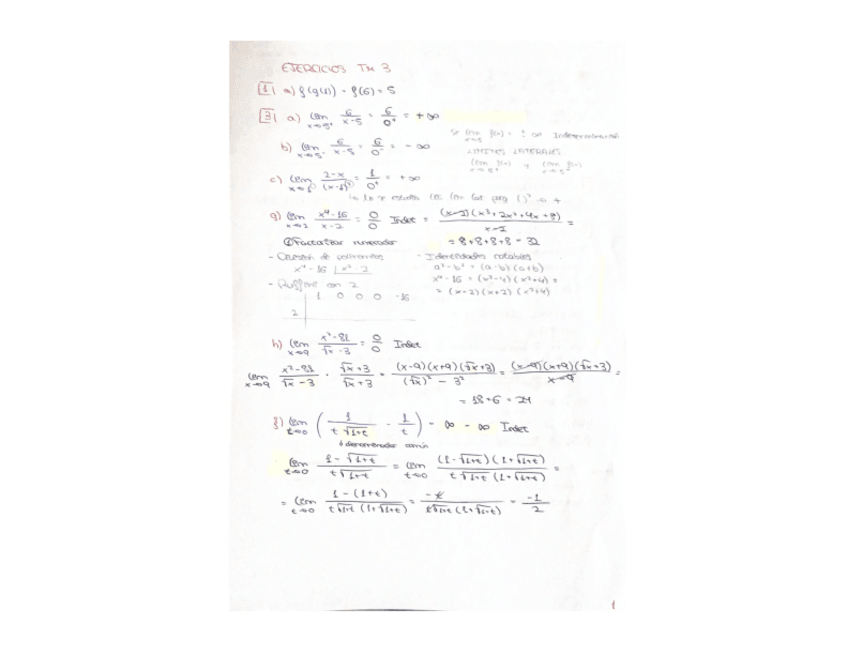 EJERCICIOS TM 3
1 a) f(g(1)) = f(6) = 5
3 a) lim x→5⁺ 6/(x-5) = 6/0⁺ = +∞
LIMITES LATERALES
b) lim x→5⁻ 6/(x-5) = 6/0⁻ = -∞
c) lim x→1 (2-x)/(x-1)² = 1/0⁺ = +∞
g) lim x→2 (x⁴-16)/(x-2) = 0/0 Indet = (x-2)(x³+2x²+4x+8)/(x-2) =
Factorizar numerador = 8+8+8+8 = 32
- División de polinomios
x⁴-16 | x-2
- Ruffini con 2
1 0 0 0 -16
2
- Identidades notables
a²-b² = (a-b)(a+b)
x⁴-16 = (x²-4)(x²+4) =
= (x-2)(x+2)(x²+4)
h) lim x→9 (x²-81)/(√x-3) = 0/0 Indet
lim x→9 (x²-81)/(√x-3) · (√x+3)/(√x+3) = (x-9)(x+9)(√x+3)/((√x)²-3²) = (x-9)(x+9)(√x+3)/(x-9) =
= 18+6 = 24
lim t→0 (1/(t√(1+t)) - 1/t) = ∞ - ∞ Indet
denominador común
lim t→0 (1-√(1+t))/(t√(1+t)) = lim t→0 (1-√(1+t))(1+√(1+t))/(t√(1+t)(1+√(1+t))) =
= lim t→0 (1-(1+t))/(t√(1+t)(1+√(1+t))) = -t/(t√(1+t)(1+√(1+t))) = -1/2
1